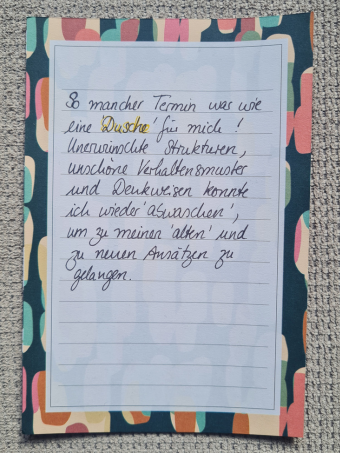 So mancher Termin war wie
eine 'Dusche' für mich!
Unerwünschte Strukturen,
unschöne Verhaltensmuster
und Denkweisen konnte
ich wieder 'abwaschen',
um zu meinen 'alten' und
zu neuen Ansätzen zu
gelangen.